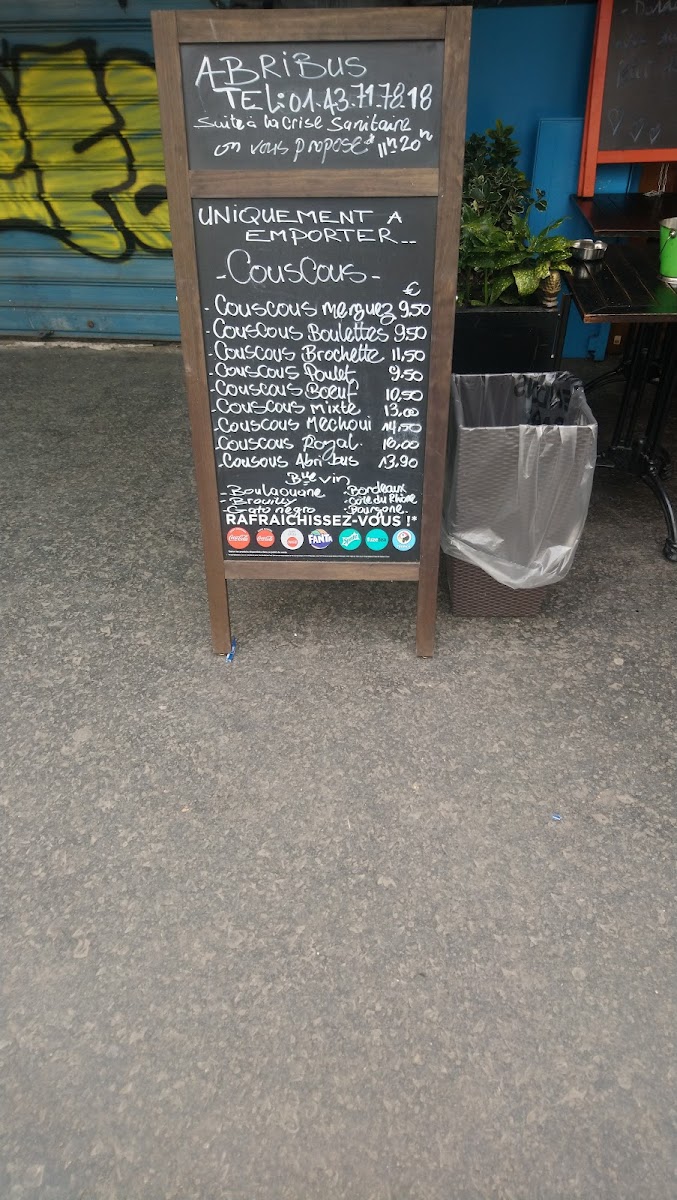 ABRIBUS
TEL: 01.43.71.78.18
Suite à la Crise Sanitaire
on vous propose 11h 20h
UNIQUEMENT A
EMPORTER__
- COUSCOUS -
€
- Couscous merguez 9,50
- Couscous Boulettes 9.50
- Couscous Brochette 11,50
- Couscous Poulet 9.50
- Couscous Boeuf 10,50
- Couscous mixte 13,00
- Couscous Mechoui 14,50
- Couscous Royal. 16,00
- Cousous Abribus 13,90
Blle vin
- Boulaouane - Bordeaux
- Brouilly - Côte du Rhône
- Gato negro - Bourgone
RAFRAICHISSEZ-VOUS !*
Coca-Cola FANTA